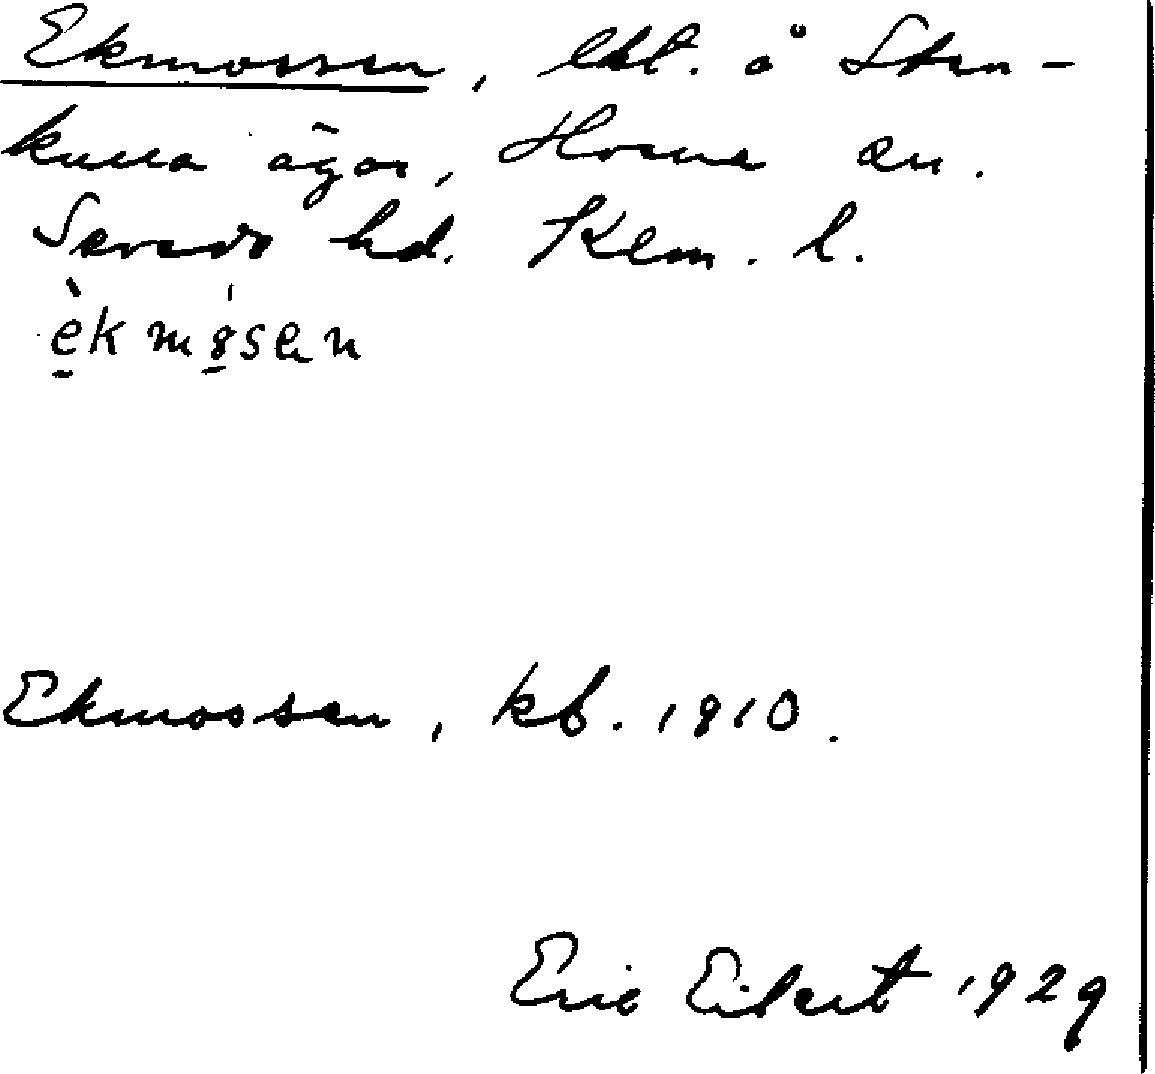 Ekmossen, lht. å Sten-
kulla ägor, Hosna sn.
Sevede hd. Klm. l.
èkmøsen
Ekmossen, kb. 1910.
Eric Eilert 1929